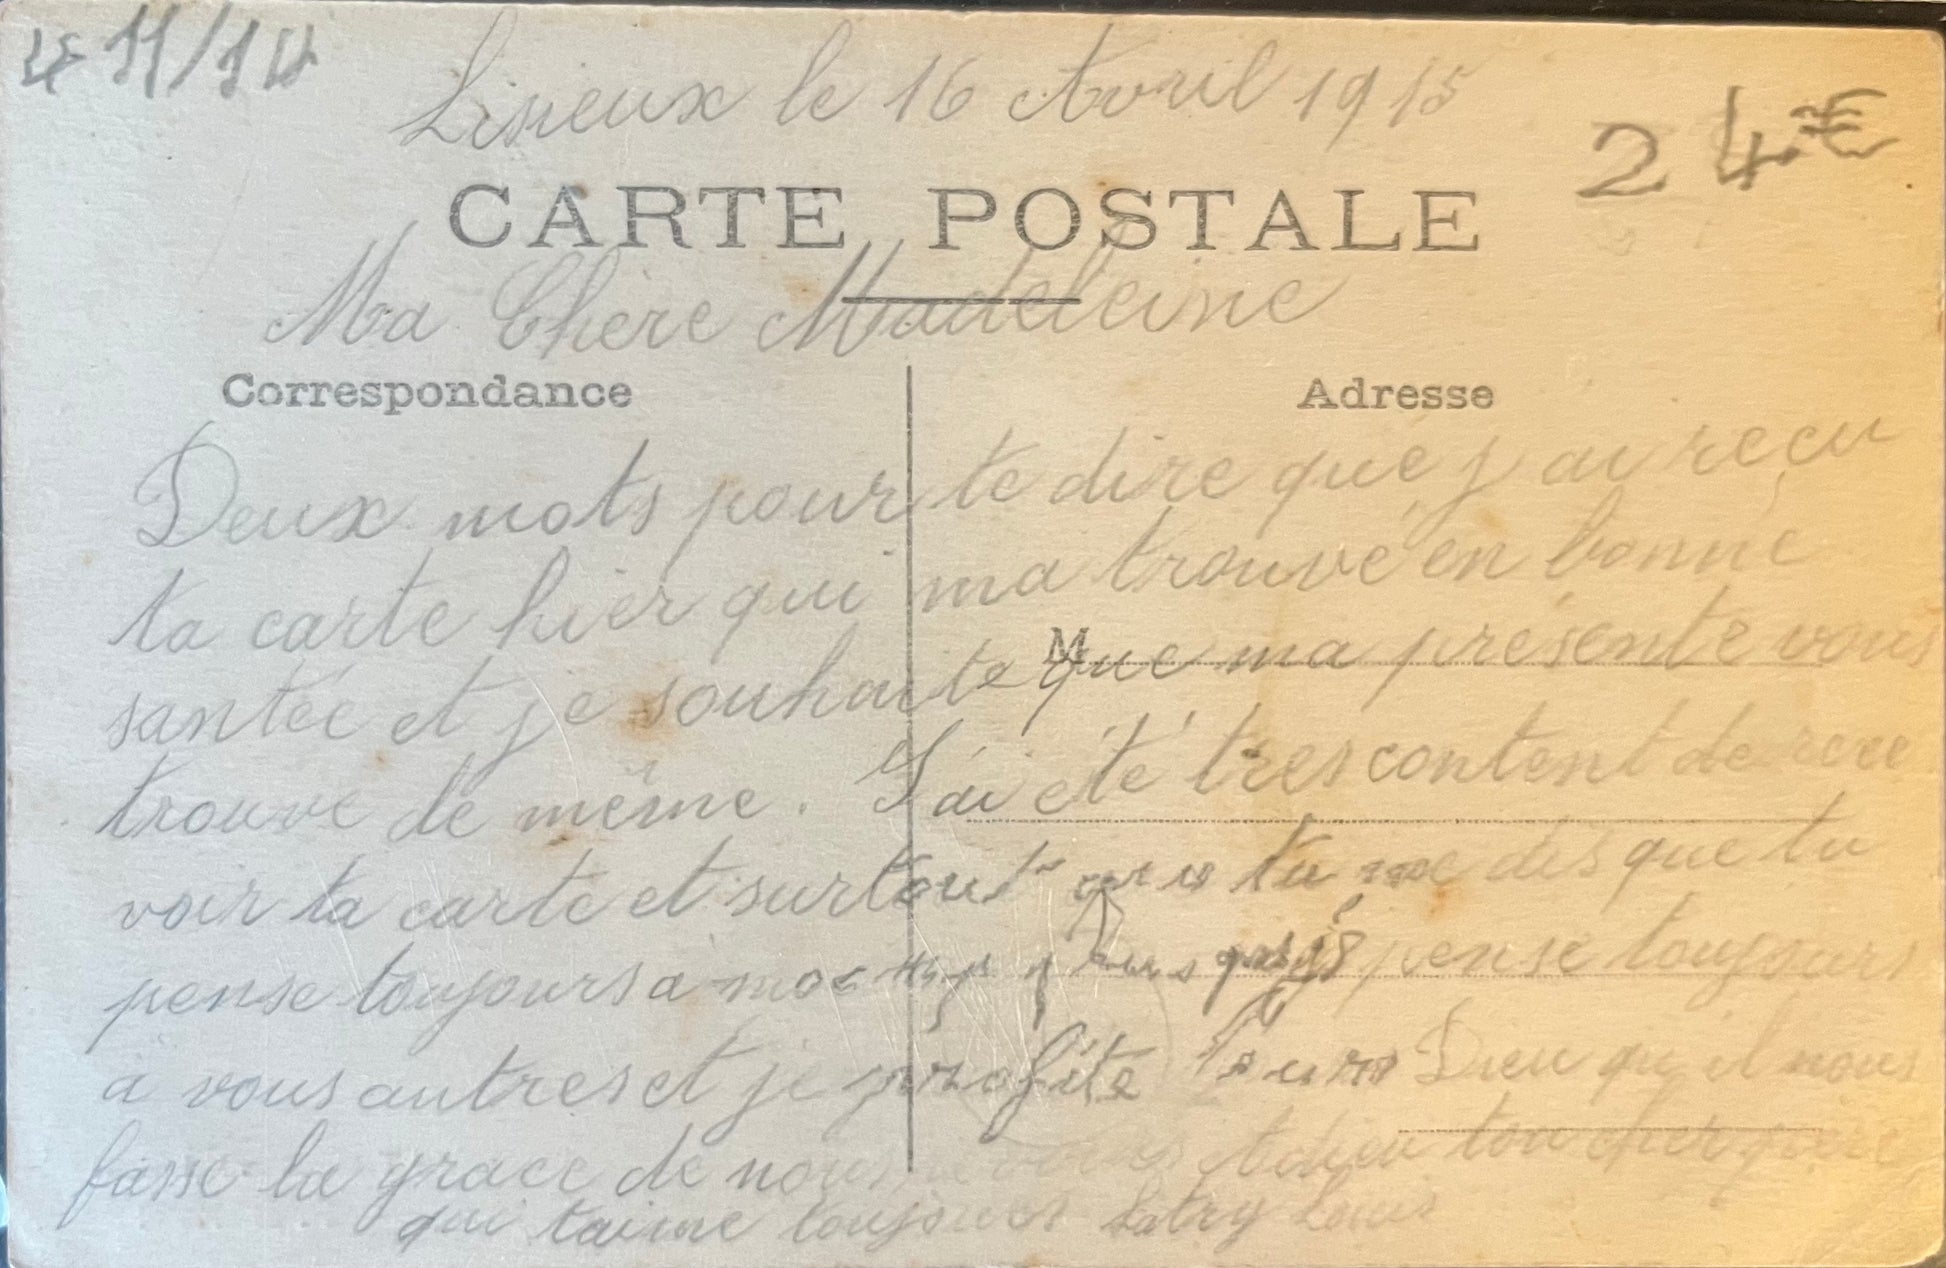 11/14
Lisieux le 16 Avril 1915
2 4.€
CARTE POSTALE
Ma Chère Madeleine
Correspondance
Adresse
Deux mots pour te dire que j'ai reçu
ta carte hier qui ma trouvé en bonne
M
santée et je souhaite que ma présente vous
trouve de même. J'ai été tres content de rece
voir ta carte et surtout tu me dis que tu
pense toujours a moi pense toujours
à vous autres et je Dieu qu'il nous
fasse la grace de nous Adieu ton cher
qui taime toujours Latry Louis